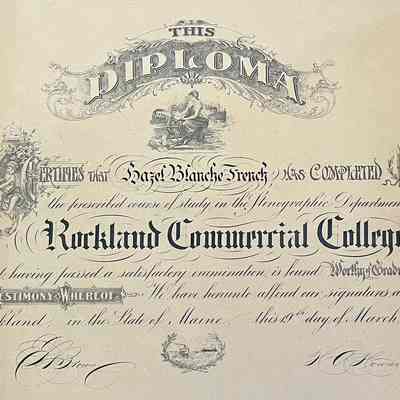 THIS
DIPLOMA
CERTIFIES THAT Hazel Blanche French HAS COMPLETED
the prescribed course of study in the Stenographic Departmen
Rockland Commercial College
having passed a satisfactory examination is found Worthy of Gradu
TESTIMONY WHEREOF We have hereunto affixed our signatures a
kland, in the State of Maine, this 19th day of March,